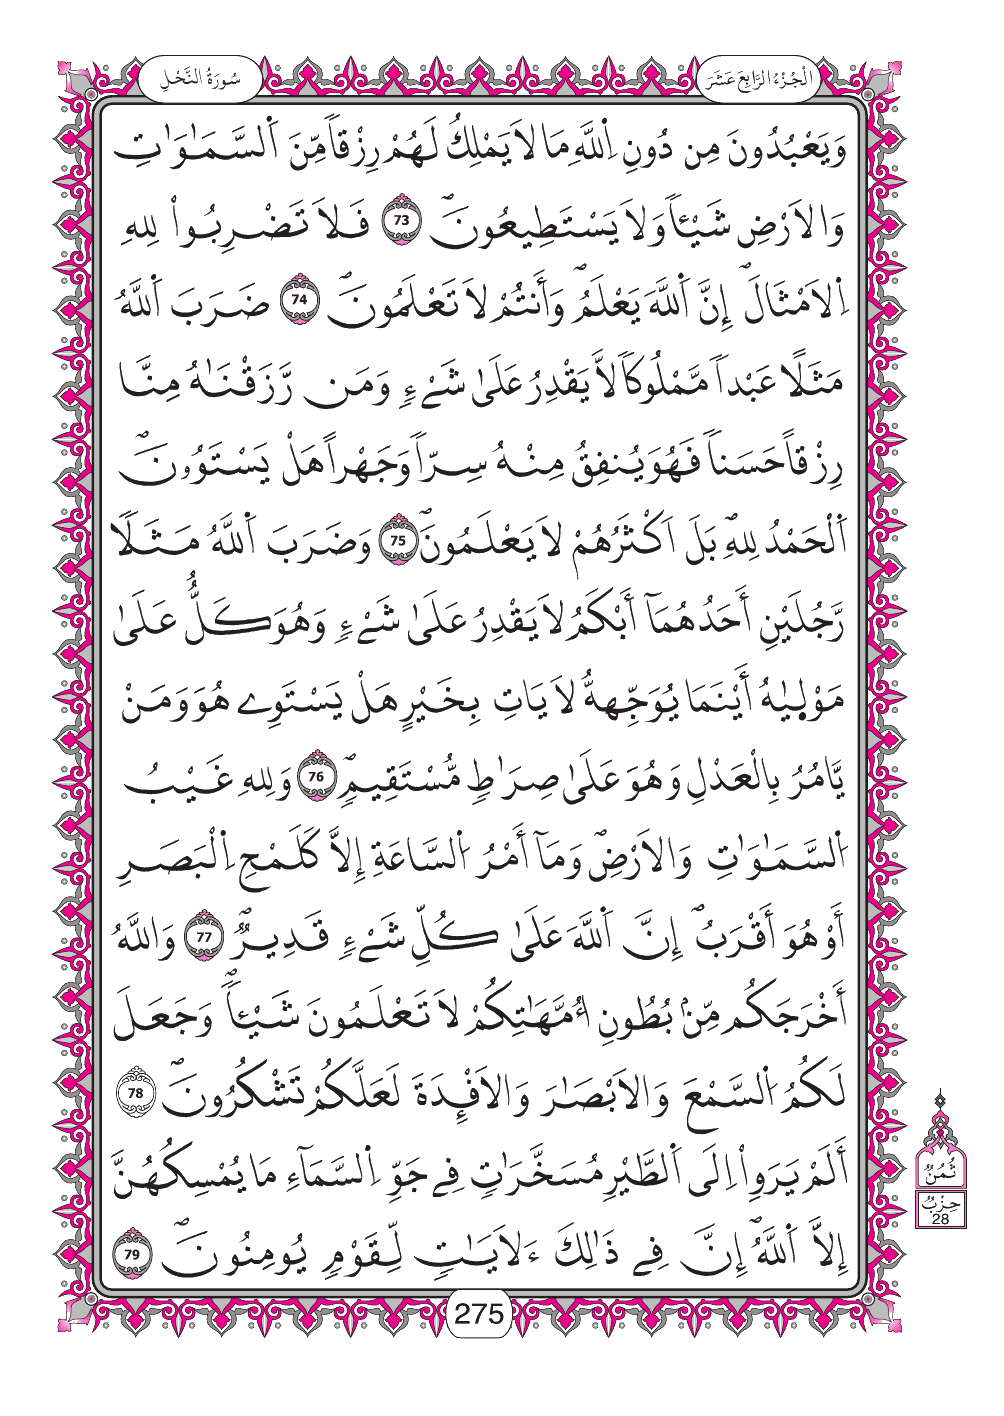 الْجُزْءُ الرَّابِعَ عَشَرَ
سُورَةُ النَّحْلِ
وَيَعْبُدُونَ مِن دُونِ اِ۬للَّهِ مَا لَا يَمْلِكُ لَهُمْ رِزْقاٗ مِّنَ اَ۬لسَّمَٰوَٰتِ
وَالَارْضِ شَيْـٔاٗ وَلَا يَسْتَطِيعُونَۖ 73 فَلَا تَضْرِبُواْ لِلهِ
اِ۬لَامْثَالَۖ إِنَّ اَ۬للَّهَ يَعْلَمُۖ وَأَنتُمْ لَا تَعْلَمُونَۖ 74 ضَرَبَ اَ۬للَّهُ
مَثَلًا عَبْداٗ مَّمْلُوكاٗ لَّا يَقْدِرُ عَلَىٰ شَےْءٖ وَمَن رَّزَقْنَٰهُ مِنَّا
رِزْقاً حَسَناٗ فَهُوَ يُنفِقُ مِنْهُ سِرّاٗ وَجَهْراً هَلْ يَسْتَوُۥنَۖ
اَ۬لْحَمْدُ لِلهِۖ بَلَ اَكْثَرُهُمْ لَا يَعْلَمُونَۖ 75 وَضَرَبَ اَ۬للَّهُ مَثَلًا
رَّجُلَيْنِ أَحَدُهُمَآ أَبْكَمُ لَا يَقْدِرُ عَلَىٰ شَےْءٖ وَهُوَ كَلٌّ عَلَىٰ
مَوْل۪يٰهُ أَيْنَمَا يُوَجِّههُّ لَا يَاتِ بِخَيْرٍ هَلْ يَسْتَوِے هُوَ وَمَنْ
يَّامُرُ بِالْعَدْلِ وَهُوَ عَلَىٰ صِرَٰطٖ مُّسْتَقِيمٖۖ 76 وَلِلهِ غَيْبُ
اُ۬لسَّمَٰوَٰتِ وَالَارْضِۖ وَمَآ أَمْرُ اُ۬لسَّاعَةِ إِلَّا كَلَمْحِ اِ۬لْبَصَرِ
أَوْ هُوَ أَقْرَبُۖ إِنَّ اَ۬للَّهَ عَلَىٰ كُلِّ شَےْءٖ قَدِيرٞۖ 77 وَاللَّهُ
أَخْرَجَكُم مِّنۢ بُطُونِ أُمَّهَٰتِكُمْ لَا تَعْلَمُونَ شَيْـٔاٗۖ وَجَعَلَ
لَكُمُ اُ۬لسَّمْعَ وَالَابْصَٰرَ وَالَافْـِٕدَةَ لَعَلَّكُمْ تَشْكُرُونَۖ 78
أَلَمْ يَرَوِاْ اِلَى اَ۬لطَّيْرِ مُسَخَّرَٰتٖ فِے جَوِّ اِ۬لسَّمَآءِ مَا يُمْسِكُهُنَّ
إِلَّا اَ۬للَّهُۖ إِنَّ فِے ذَٰلِكَ ءَلَايَٰتٖ لِّقَوْمٖ يُومِنُونَۖ 79
ثُمُنٌ
حِزْبُ
28
275